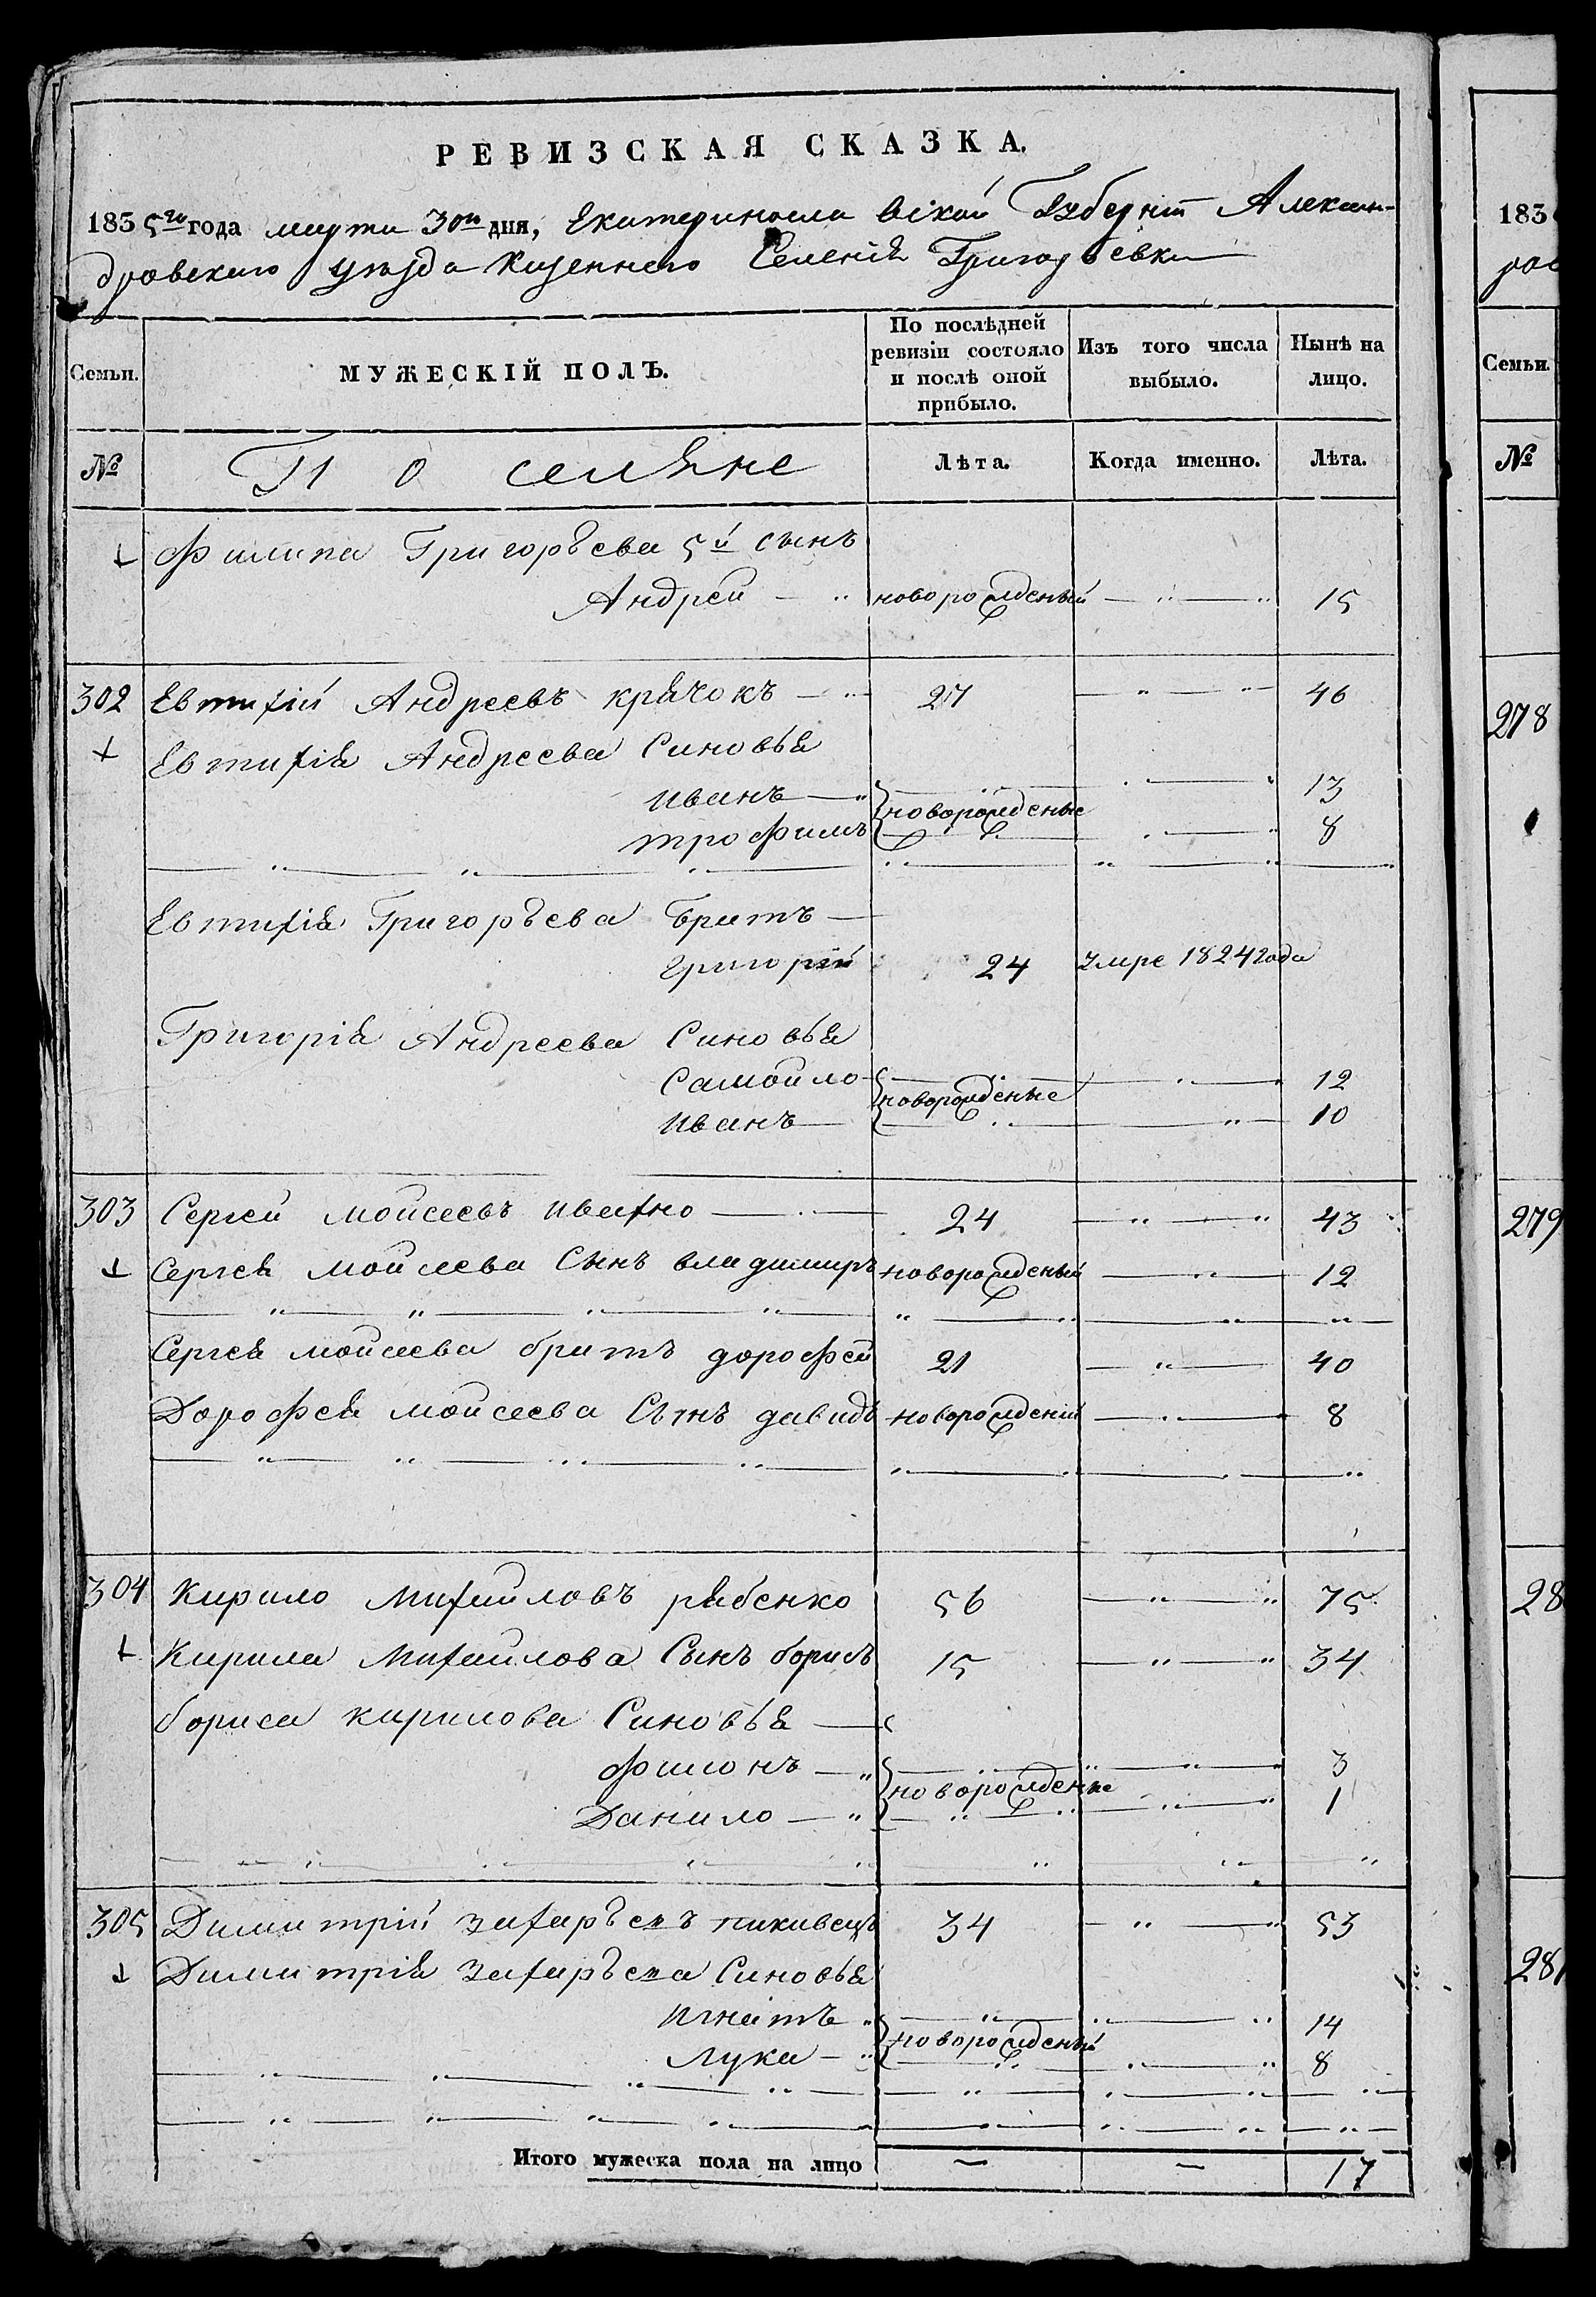 РЕВИЗСКАЯ СКАЗКА.
1835го года марта 3го дня, Екатеринославской Губернии Алексан-
дровского уѣзда Казенного Селенія Григорьевки
Семьи.
МУЖЕСКІЙ ПОЛЪ.
По послѣдней ревизіи состояло и послѣ оной прибыло.
Изъ того числа выбыло.
Нынѣ на лицо.
№
Поселяне
Лѣта.
Когда именно.
Лѣта.
Филипа Григорьева 5й сынъ
Андрей новорожденый 15
302 Евтихій Андреевъ крячокъ 27 46
Евтихія Андреева Синовья
иванъ 13
новорожденые
трофимъ 8
Евтихія Григорьева Братъ
григорій 24 умре 1824 года
Григорія Андреева Синовья
Самойло 12
новорожденые
иванъ 10
303 Сергей мойсеевъ ивахно 24 43
Сергея мойсеева Сынъ владимиръ новорожденый 12
Сергея мойсеева братъ дорофей 21 40
Дорофея мойсеева Сынъ давидъ новорожденій 8
304 Кирило Михайловъ рябенко 56 75
Кирила Михайлова Сынъ борисъ 15 34
бориса кирилова Синовья
филонъ 3
новорожденые
Данило 1
305 Димитрій захарьевъ пикивецъ 34 53
Димитрія захарьева Синовья
игнатъ 14
новорожденый
лука 8
Итого мужеска пола на лицо 17
183
Семьи.
№
278
279
28
281